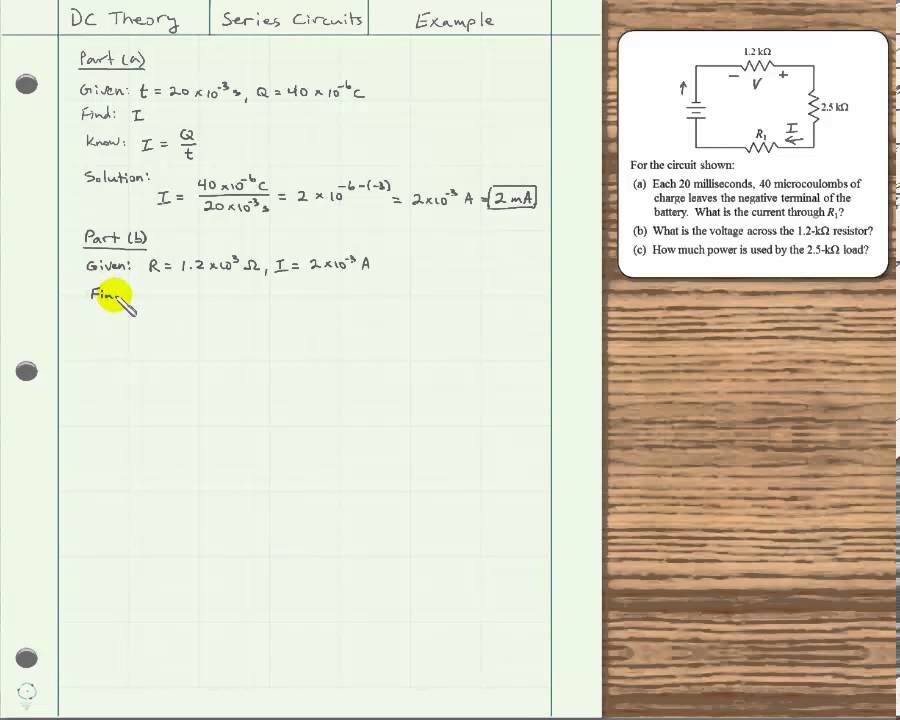 DC Theory Series Circuits Example
Part (a)
Given: t = 20 × 10⁻³ s, Q = 40 × 10⁻⁶ C
Find: I
Know: I = Q/t
Solution:
I = 40 × 10⁻⁶ C / 20 × 10⁻³ s = 2 × 10⁻⁶⁻⁽⁻³⁾ = 2 × 10⁻³ A = 2 mA
Part (b)
Given: R = 1.2 × 10³ Ω, I = 2 × 10⁻³ A
Fin
1.2 kΩ
− V +
2.5 kΩ
R₁ I
For the circuit shown:
(a) Each 20 milliseconds, 40 microcoulombs of
charge leaves the negative terminal of the
battery. What is the current through R₁?
(b) What is the voltage across the 1.2-kΩ resistor?
(c) How much power is used by the 2.5-kΩ load?